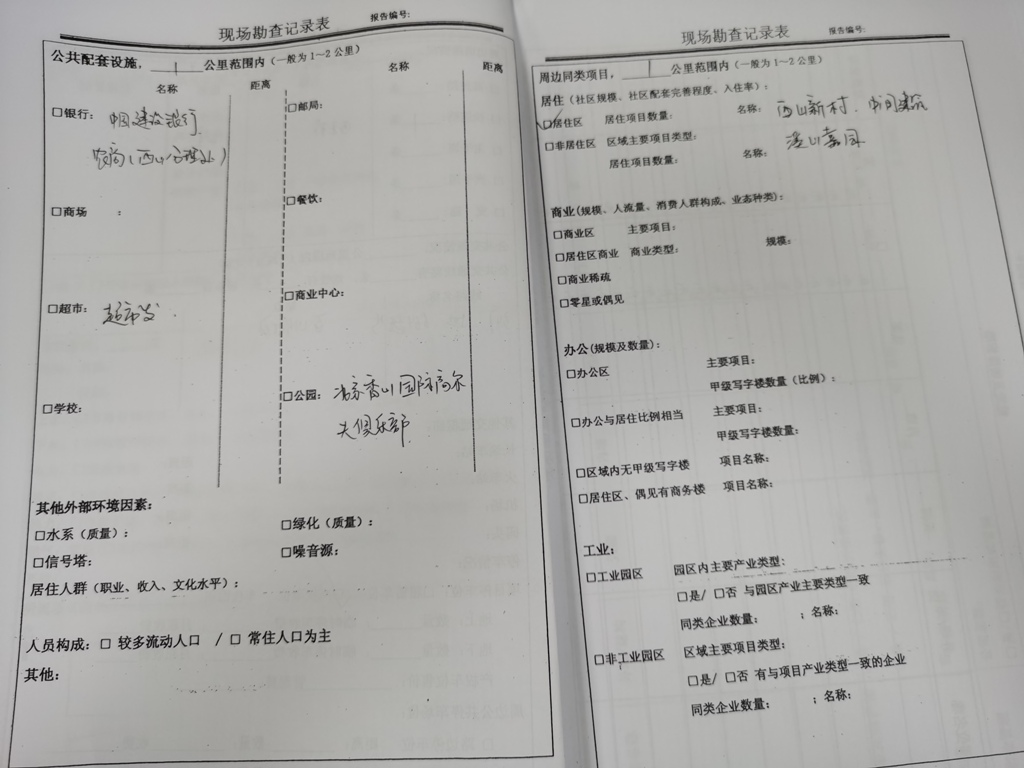 现场勘查记录表
报告编号:
公共配套设施, 1 公里范围内(一般为1~2公里)
名称 距离 名称 距离
□银行: 中国建设银行 □邮局:
农商(西山
□商场 : □餐饮:
□超市: 超市发 □商业中心:
□学校: □公园: 香山国际高尔
夫俱乐部
其他外部环境因素:
□水系(质量): □绿化(质量):
□信号塔: □噪音源:
居住人群(职业、收入、文化水平):
人员构成: □ 较多流动人口 / □ 常住人口为主
其他:
现场勘查记录表
报告编号:
周边同类项目, 1 公里范围内(一般为1~2公里)
居住(社区规模、社区配套完善程度、入住率):
☑居住区 居住项目数量: 名称: 西山新村、中间建筑
□非居住区 区域主要项目类型: 嘉园
居住项目数量: 名称:
商业(规模、人流量、消费人群构成、业态种类):
□商业区 主要项目:
□居住区商业 商业类型: 规模:
□商业稀疏
□零星或偶见
办公(规模及数量):
□办公区 主要项目:
甲级写字楼数量(比例):
□办公与居住比例相当 主要项目:
甲级写字楼数量:
□区域内无甲级写字楼 项目名称:
□居住区、偶见有商务楼 项目名称:
工业:
□工业园区 园区内主要产业类型:
□是/ □否 与园区产业主要类型一致
同类企业数量: ;名称:
□非工业园区 区域主要项目类型:
□是/ □否 有与项目产业类型一致的企业
同类企业数量: ;名称: